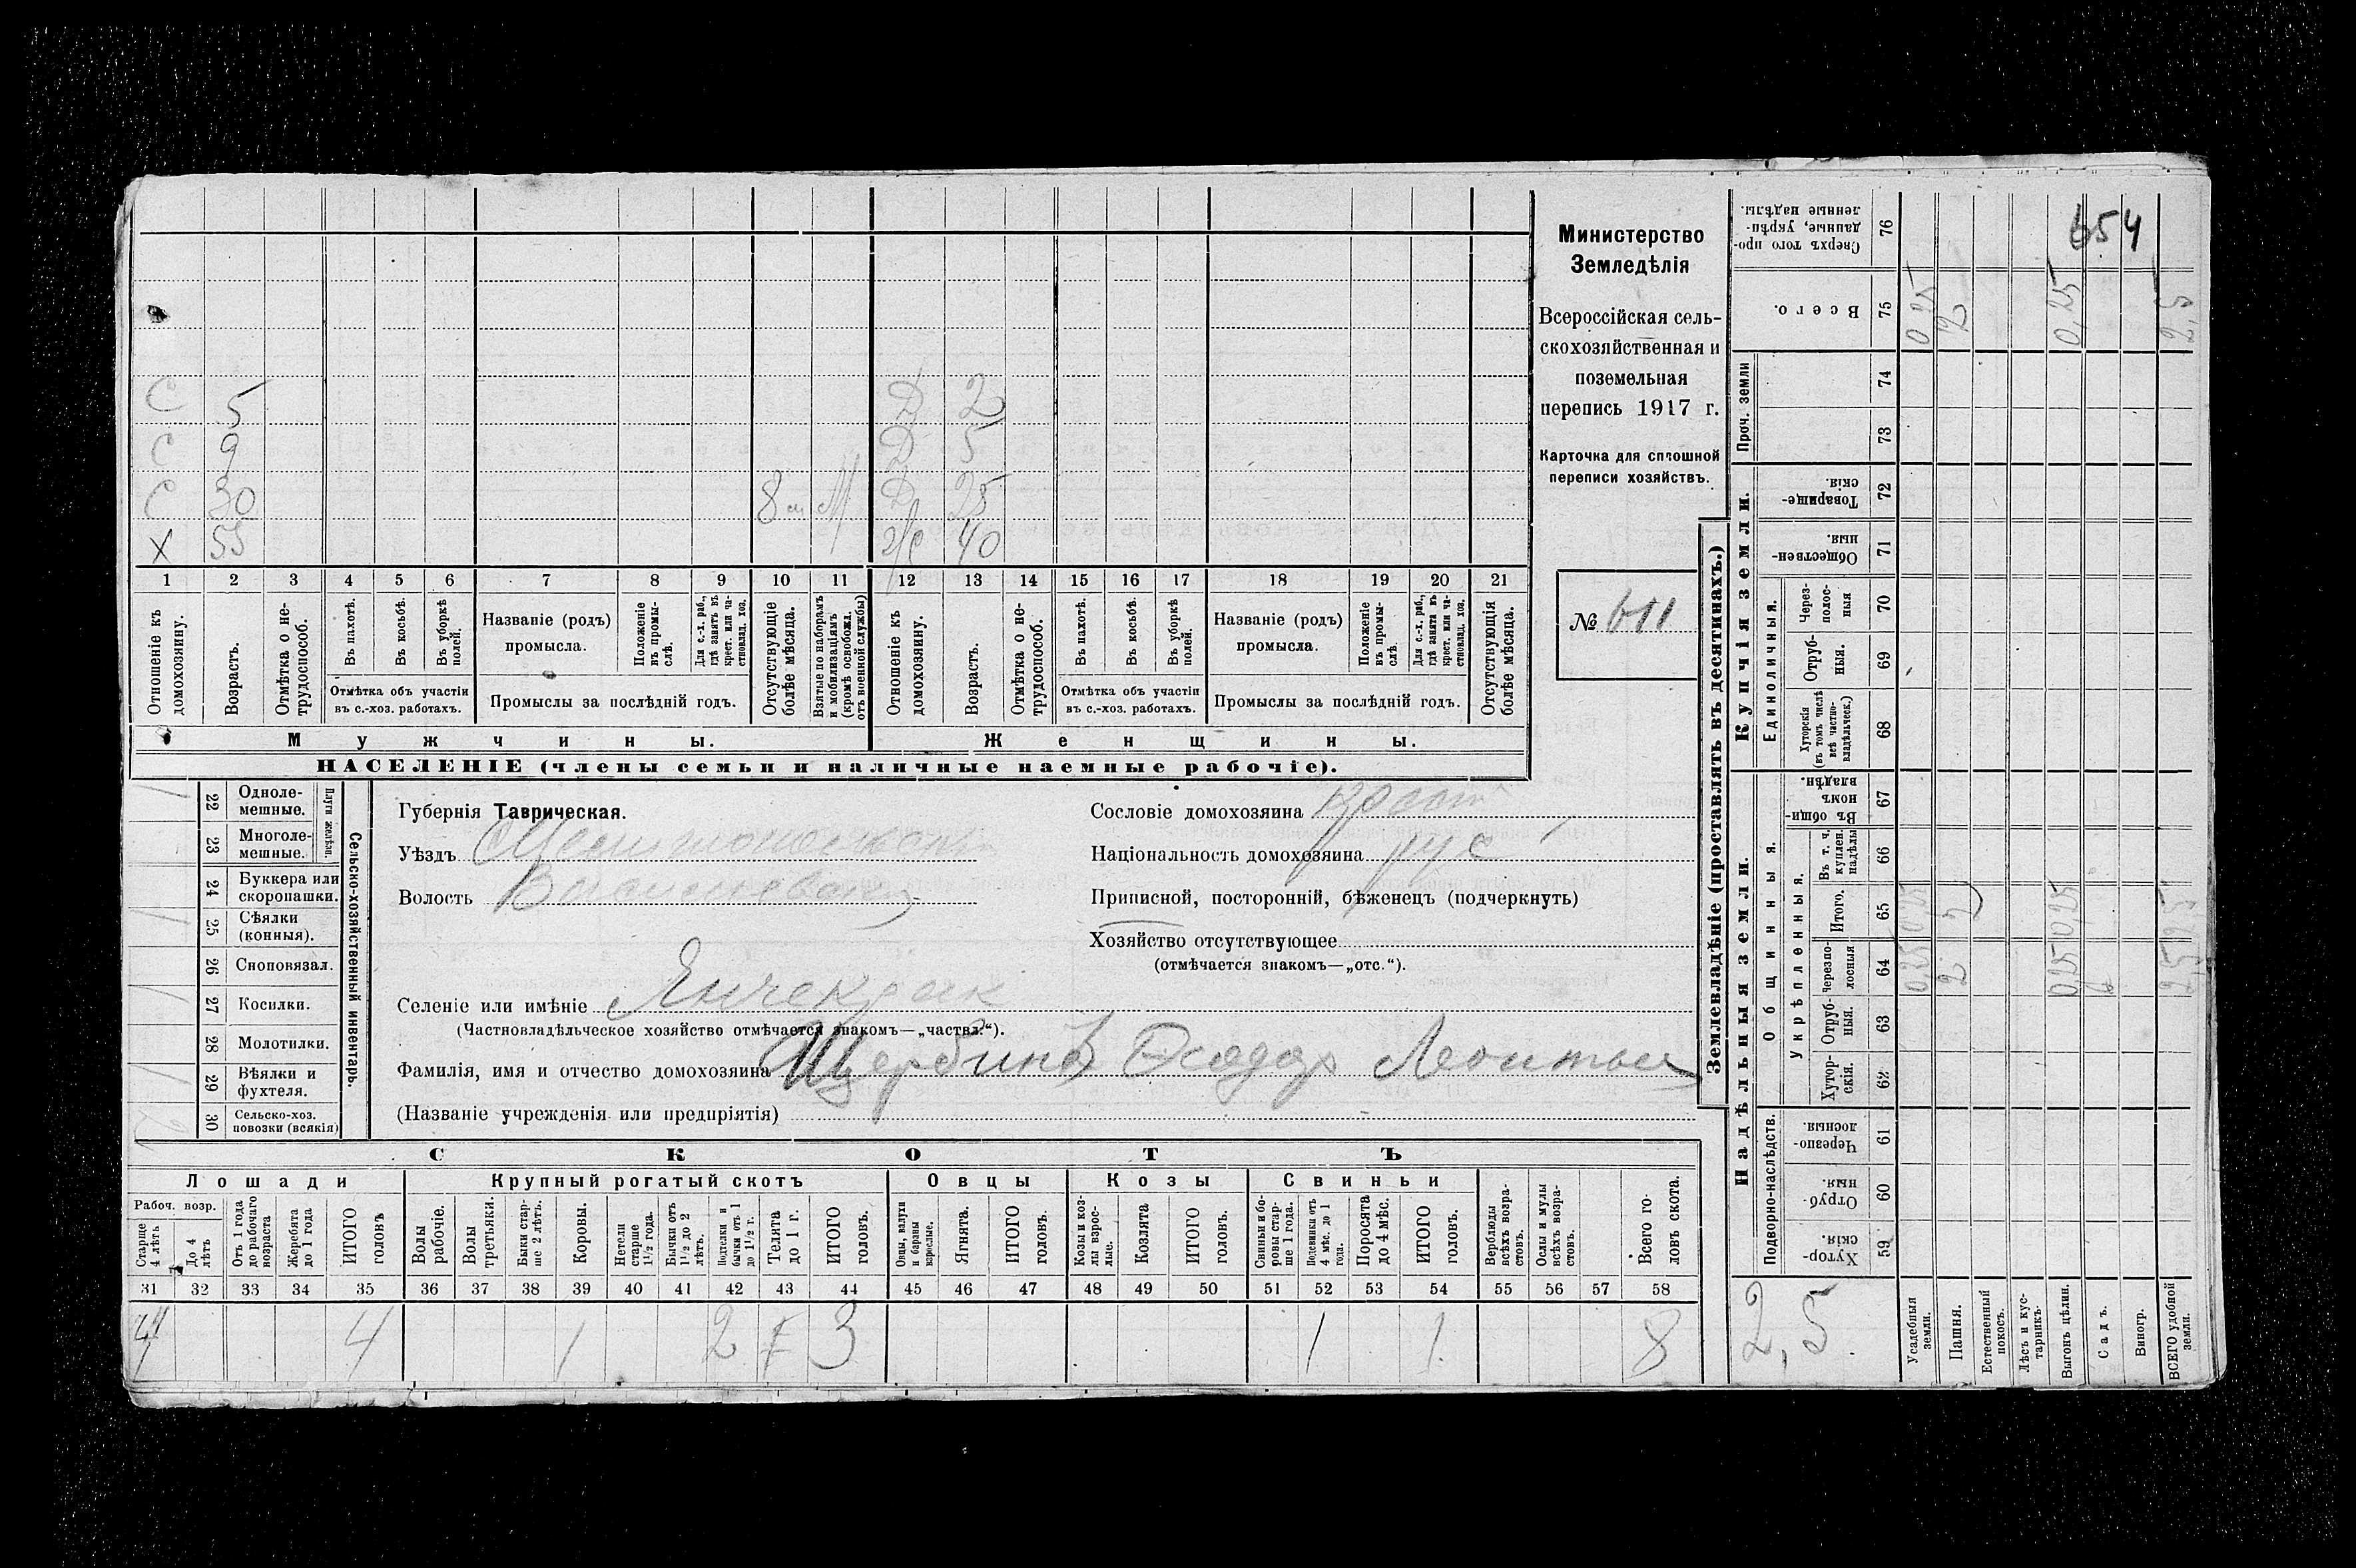 654
Министерство
Земледѣлія
Всероссійская сель-
скохозяйственная и
поземельная
перепись 1917 г.
Карточка для сплошной
переписи хозяйствъ.
№ 611
С 5 Д 2
С 9 Д 5
С 30 8 м М Д 25
Х 55 40
1 2 3 4 5 6 7 8 9 10 11 12 13 14 15 16 17 18 19 20 21
Отношеніе къ домохозяину.
Возрастъ.
Отмѣтка о не-трудоспособ.
Въ пахотѣ.
Въ косьбѣ.
Въ уборкѣ полей.
Отмѣтка объ участіи
въ с.-хоз. работахъ.
Названіе (родъ)
промысла.
Положеніе въ промы-слѣ.
Для с.-х. раб., гдѣ занятъ въ крест. или ча-стновлад. хоз.
Промыслы за послѣдній годъ.
Отсутствующіе болѣе мѣсяца.
Взятые по наборамъ и мобилизаціямъ (кромѣ освобожд. отъ военной службы)
Отношеніе къ домохозяину.
Возрастъ.
Отмѣтка о не-трудоспособ.
Въ пахотѣ.
Въ косьбѣ.
Въ уборкѣ полей.
Отмѣтка объ участіи
въ с.-хоз. работахъ.
Названіе (родъ)
промысла.
Положеніе въ промы-слѣ.
Для с.-х. раб., гдѣ занята въ крест. или ча-стновлад. хоз.
Промыслы за послѣдній годъ.
Отсутствующія болѣе мѣсяца.
Мужчины. Женщины.
НАСЕЛЕНІЕ (члены семьи и наличные наемные рабочіе).
22 Однолемешные.
23 Многолемешные.
Плуги желѣзн.
24 Буккера или скоропашки.
25 Сѣялки (конныя).
26 Сноповязал.
27 Косилки.
28 Молотилки.
29 Вѣялки и фухтеля.
30 Сельско-хоз. повозки (всякія)
Сельско-хозяйственный инвентарь.
Губернія Таврическая.
Уѣздъ
Волость
Сословіе домохозяина крест
Національность домохозяина рус
Приписной, посторонній, бѣженецъ (подчеркнуть)
Хозяйство отсутствующее
(отмѣчается знакомъ—„отс.“).
Селеніе или имѣніе Янчекрак
(Частновладѣльческое хозяйство отмѣчается знакомъ—„частвл.“).
Фамилія, имя и отчество домохозяина Щербина Федор Леонтьев
(Названіе учрежденія или предпріятія)
СКОТЪ
Лошади Крупный рогатый скотъ Овцы Козы Свиньи
Рабоч. возр.
Старше 4 лѣтъ
До 4 лѣтъ
Отъ 1 года до рабочаго возраста
Жеребята до 1 года
ИТОГО головъ
Волы рабочіе.
Волы третьяки.
Быки стар-ше 2 лѣтъ.
Коровы.
Нетели старше 1½ года.
Бычки отъ 1½ до 2 лѣтъ.
Подтелки и бычки отъ 1 до 1½ г.
Телята до 1 г.
ИТОГО головъ.
Овцы, валухи и бараны взрослые.
Ягнята.
ИТОГО головъ.
Козы и коз-лы взрос-лые.
Козлята
ИТОГО головъ.
Свиньи и бо-ровы стар-ше 1 года.
Подсвинки отъ 4 мѣс. до 1 года.
Поросята до 4 мѣс.
ИТОГО головъ.
Верблюды всѣхъ возра-стовъ.
Ослы и мулы всѣхъ возра-стовъ.
Всего го-ловъ скота.
31 32 33 34 35 36 37 38 39 40 41 42 43 44 45 46 47 48 49 50 51 52 53 54 55 56 57 58
4 4 1 2 3 1 1 8
Землевладѣніе (проставлять въ десятинахъ.)
Надѣльныя земли. Купчія земли. Проч. земли
Подворно-наслѣдств. Общинныя. Единоличныя.
Укрѣпленныя.
76 Сверхъ того про-данные, укрѣп-ленные надѣлы.
75 Всего. 0,25 2 0,25 2,5
74
73
72 Товарище-скія.
71 Обществен-ныя
70 Через-полос-ныя
69 Отруб-ныя.
68 Хуторскія (въ томъ числѣ всѣ частно-владѣльческ.)
67 Въ общин-номъ владѣн.
66 Въ т. ч. куплен. надѣлы
65 Итого. 0,25 2 0,25 2,5
64 Черезпо-лосныя 0,25 2 0,25 2,5
63 Отруб-ныя.
62 Хутор-скія.
61 Черезпо-лосныя.
60 Отруб-ныя.
59 Хутор-скія.
2,5
Усадебныя земли.
Пашня.
Естественный покосъ.
Лѣсъ и кус-тарникъ.
Выгонъ цѣлин.
Садъ.
Виногр.
ВСЕГО удобной земли.